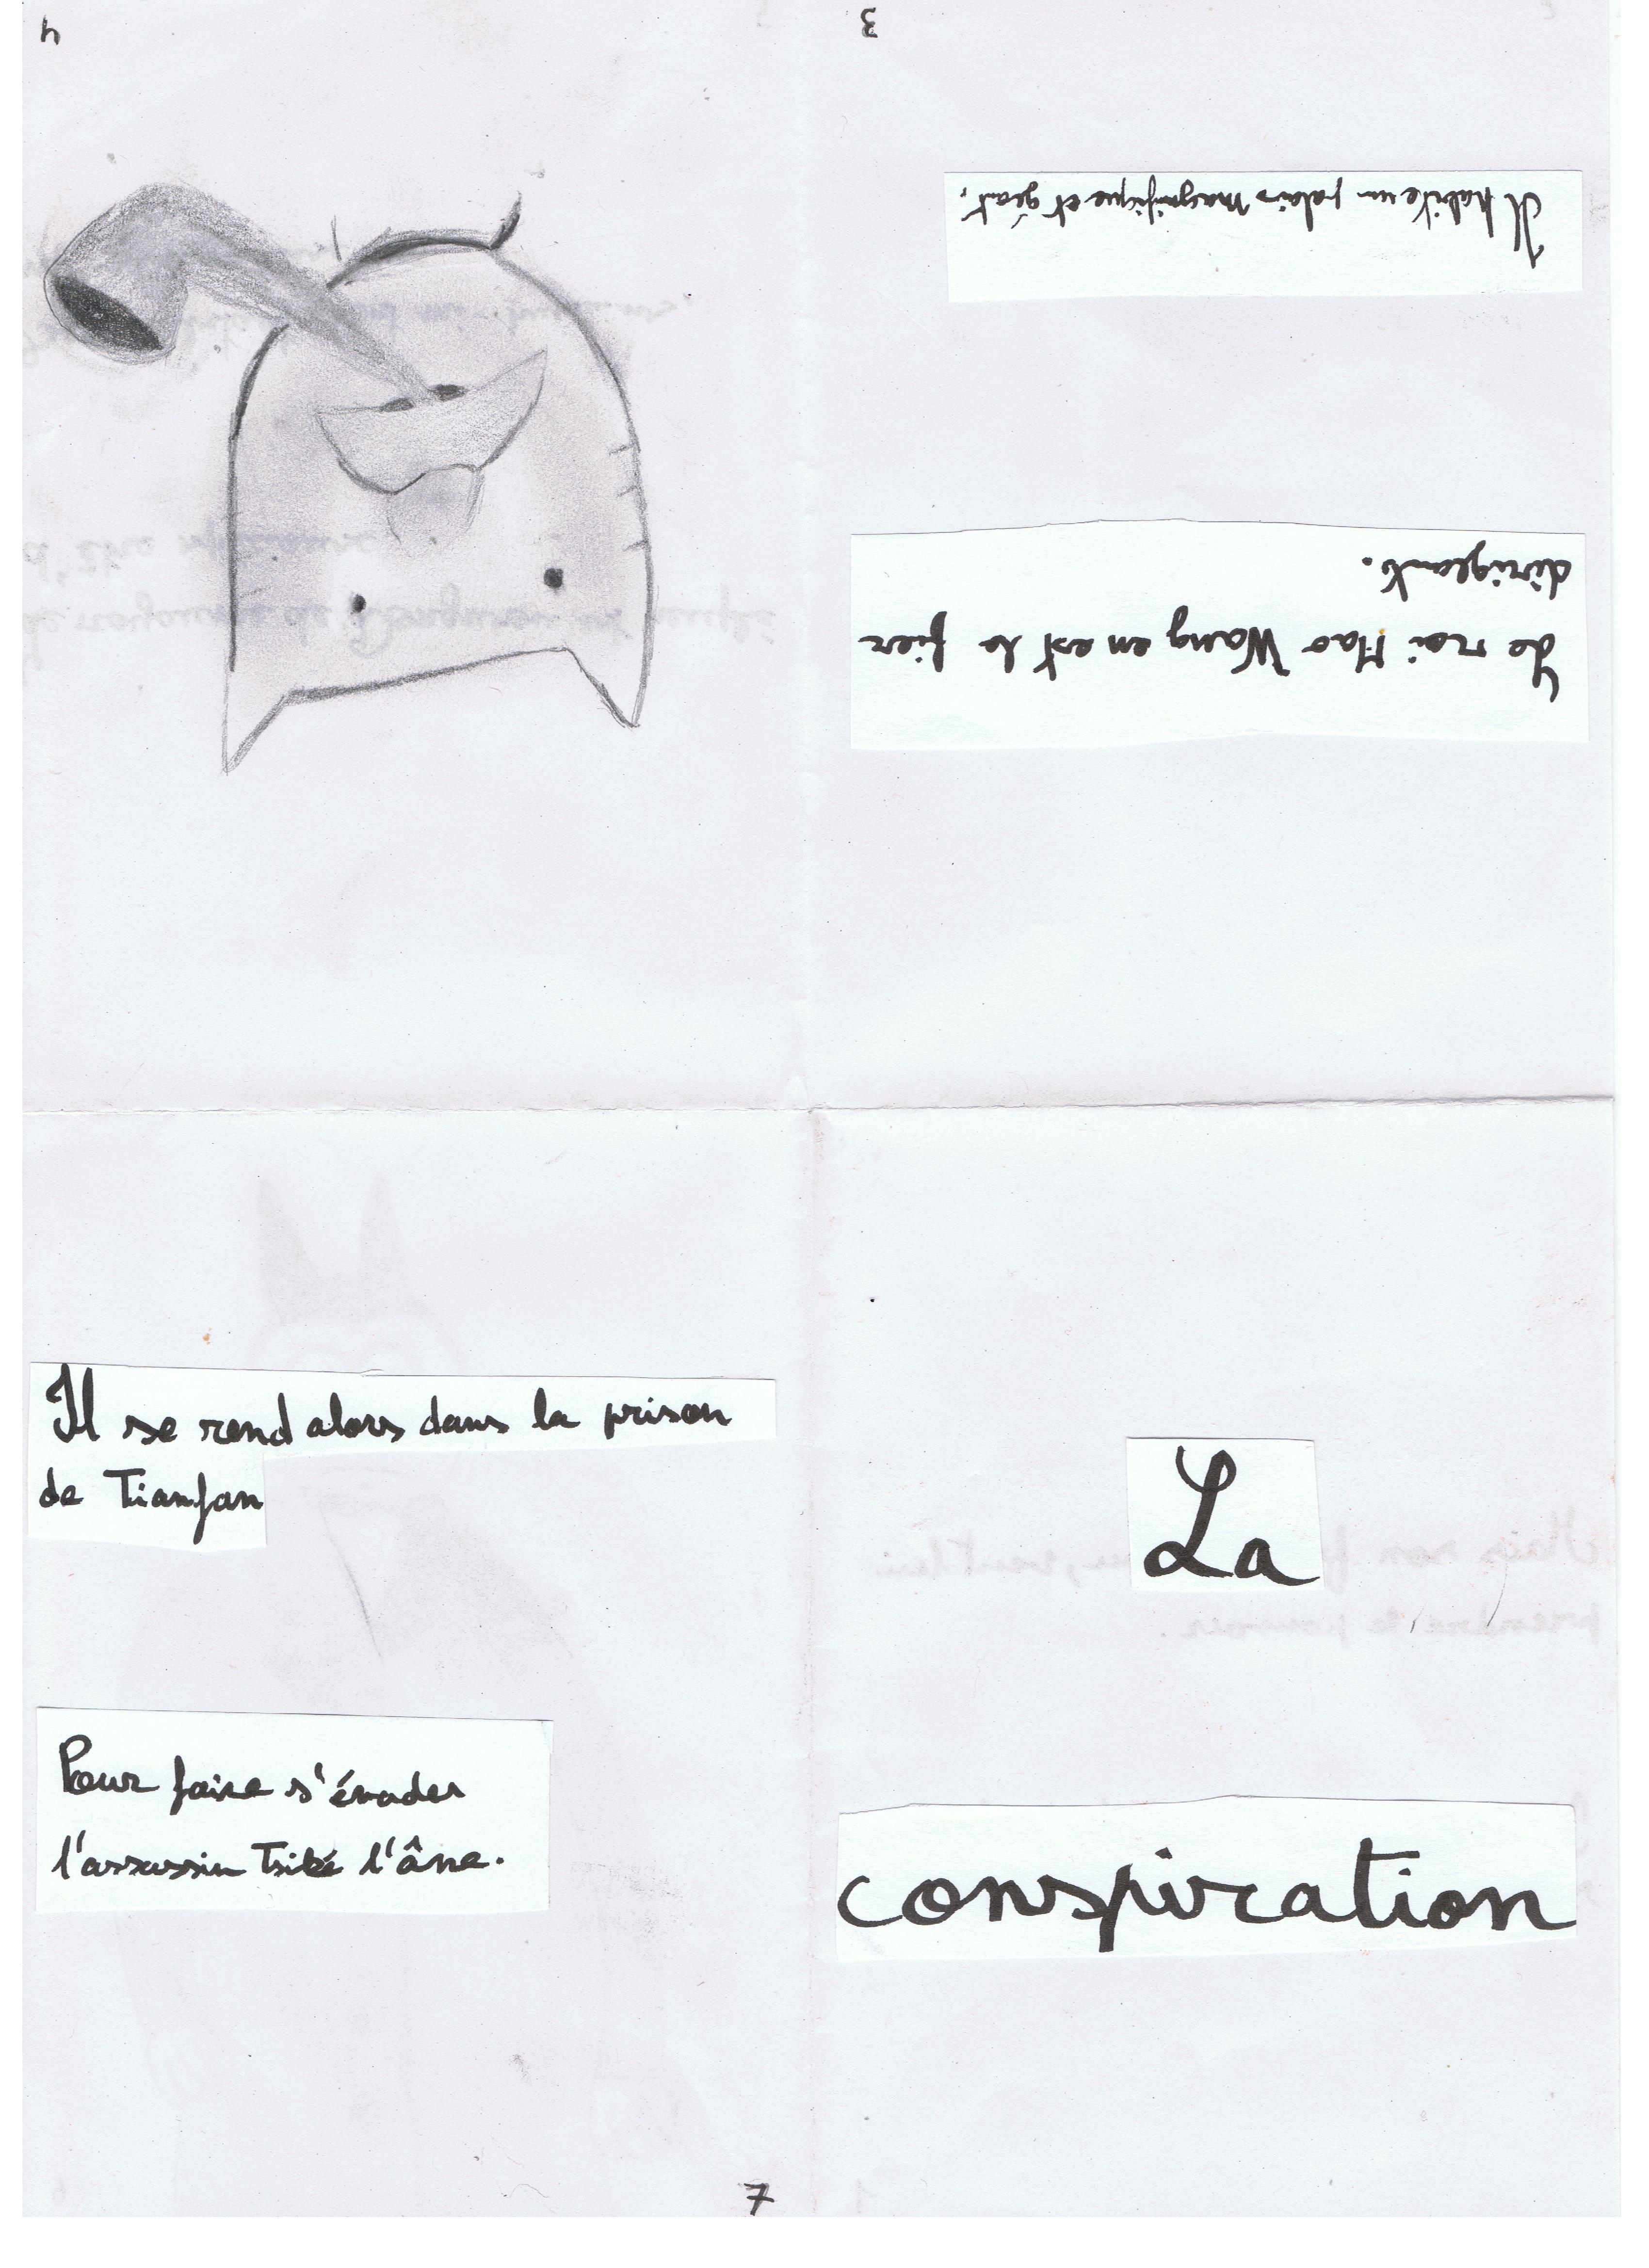 4
3
Le roi Mao Wang en est le fier
dirigeant.
Il habite un palais magnifique et géant.
Il se rend alors dans la prison
de Tianfan
Pour faire s'évader
l'assassin Tsibé l'âne.
7
La
conspiration